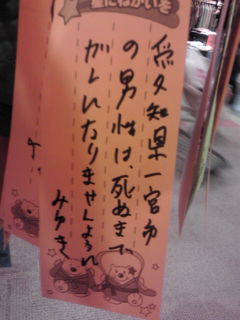 星にねがいを
愛知県一宮市
の男性は、死ぬまで
がんになりませんように
みゆき